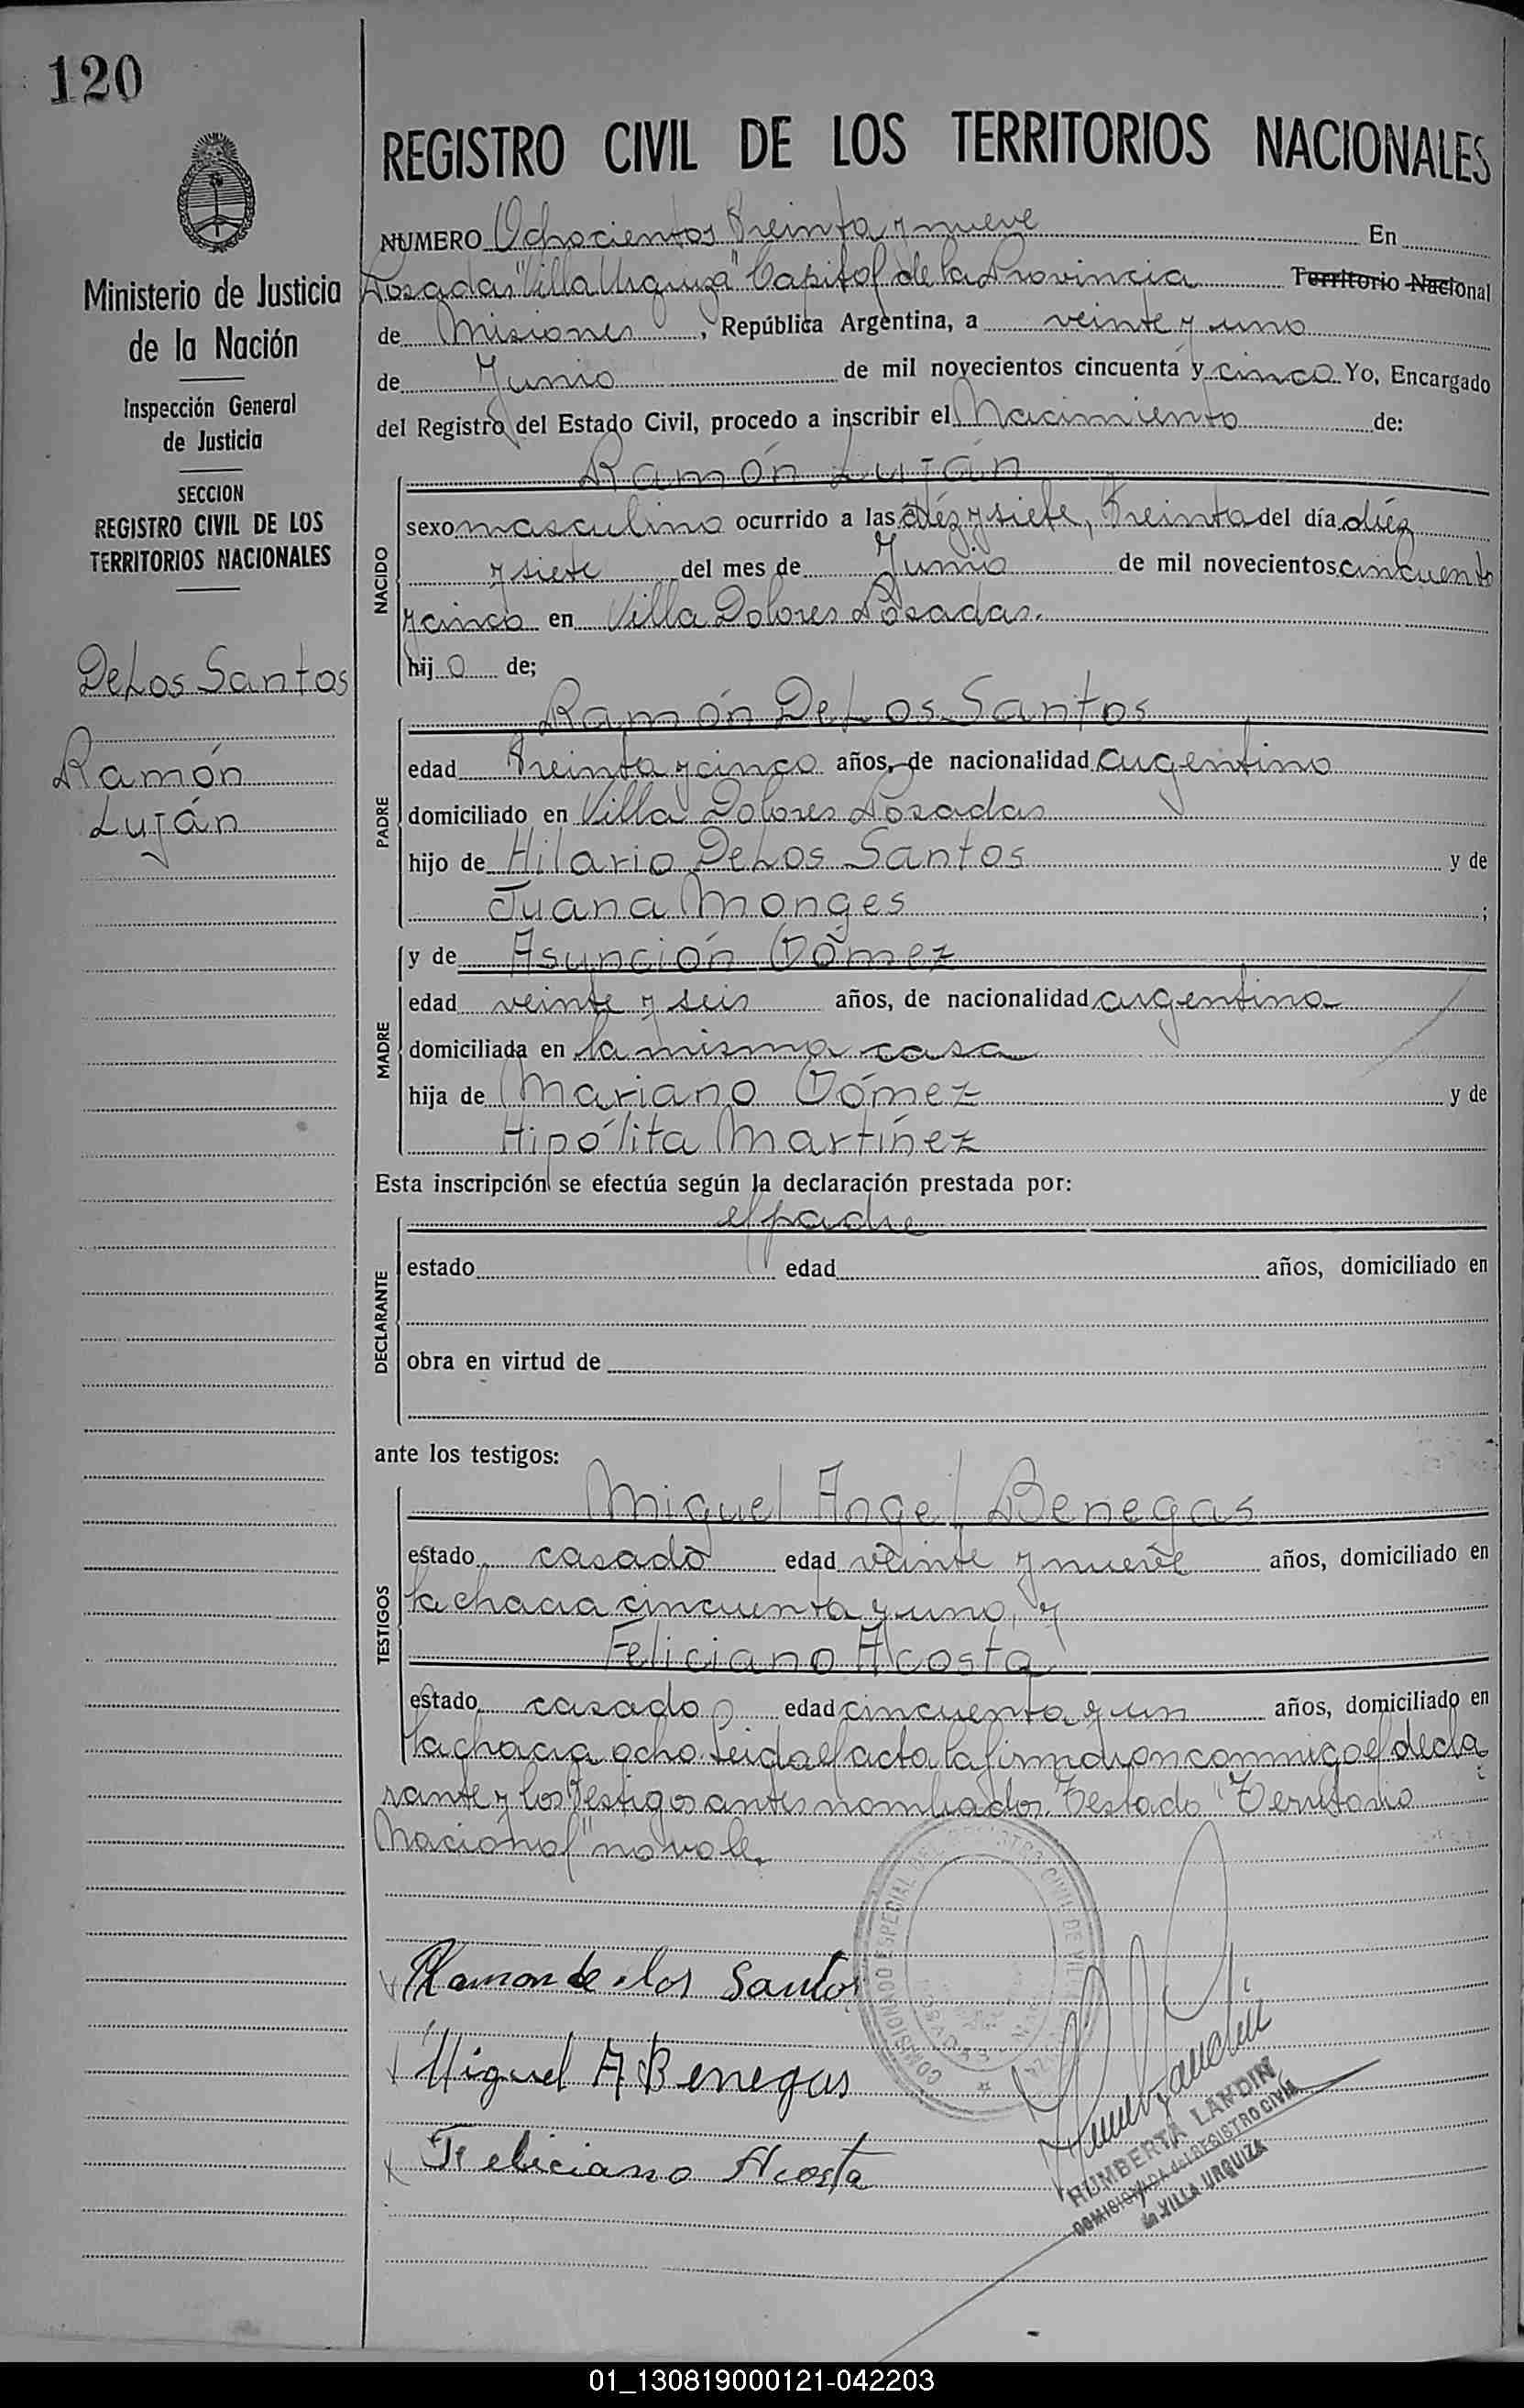 120
REGISTRO CIVIL DE LOS TERRITORIOS NACIONALES
NUMERO Ochocientos treinta y nueve En
Posadas "Villa Urquiza" Capital de la Provincia Territorio Nacional
de Misiones, República Argentina, a veinte y uno
de Junio de mil novecientos cincuenta y cinco Yo, Encargado
del Registro del Estado Civil, procedo a inscribir el Nacimiento de:
Ministerio de Justicia
de la Nación
Inspección General
de Justicia
SECCION
REGISTRO CIVIL DE LOS
TERRITORIOS NACIONALES
DeLos Santos
Ramón
Luján
NACIDO
Ramón Luján
sexo masculino ocurrido a las diéz y siete, treinta del día diéz
y siete del mes de Junio de mil novecientos cincuenta
y cinco en Villa Dolores Posadas.
hijo de;
PADRE
Ramón DeLos Santos
edad treinta y cinco años, de nacionalidad argentino
domiciliado en Villa Dolores Posadas
hijo de Hilario DeLos Santos y de
Juana Monges ;
y de Asunción Gómez
MADRE
edad veinte y seis años, de nacionalidad argentina
domiciliada en la misma casa
hija de Mariano Gómez y de
Hipólita Martínez
Esta inscripción se efectúa según la declaración prestada por:
DECLARANTE
el padre
estado edad años, domiciliado en
obra en virtud de
ante los testigos:
TESTIGOS
Miguel Angel Benegas
estado casado edad veinte y nueve años, domiciliado en
la chacra cincuenta y uno, y
Feliciano Acosta
estado casado edad cincuenta y un años, domiciliado en
la chacra ocho. Leida el acta la firmaron conmigo el decla
rante y los testigos antes nombrados. Testado "Territorio
Nacional" no vale.
Ramon de los Santos
Miguel A Benegas
Feliciano Acosta
HUMBERTA LANDIN
COMISIONADA del REGISTRO CIVIL
de VILLA URQUIZA
01_130819000121-042203